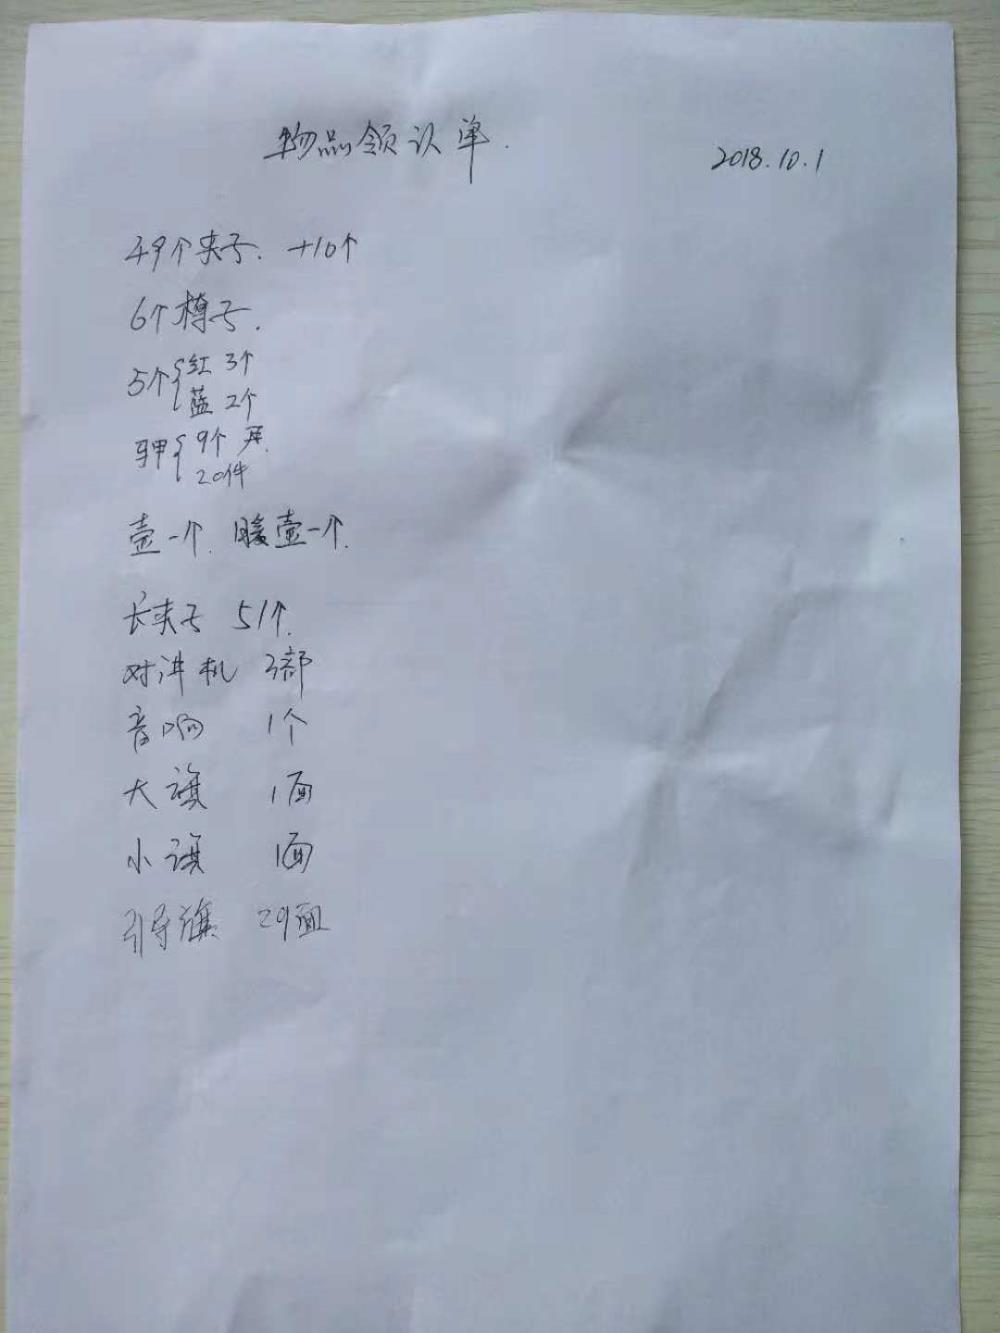 物品领认单.
2018.10.1
49个夹子. +10个
6个
5个{红 3个
蓝 2个
马甲{9个
20件
壶一个. 暖壶一个.
长夹子 51个.
对讲机 3部
音响 1个
大旗 1面
小旗 1面
引导旗 29面